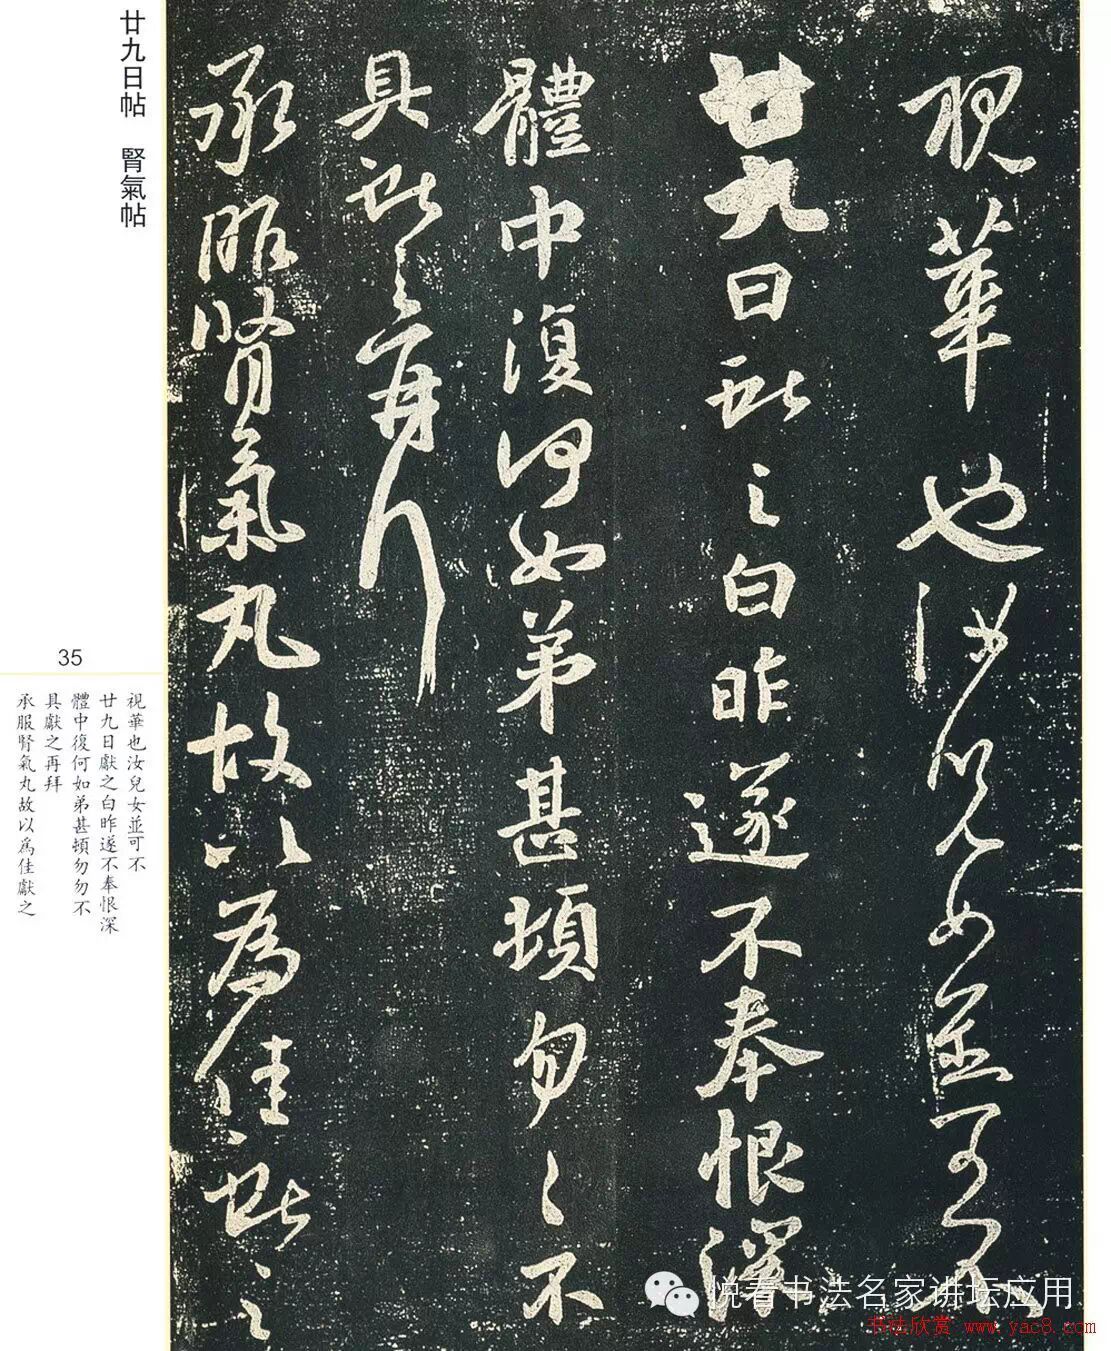 視華也汝兒女並可不
廿九日獻之白昨遂不奉恨深
體中復何如弟甚頓勿〻不
具獻之再拜
承服腎氣丸故以為佳獻之
廿九日帖 腎氣帖
35
視華也汝兒女並可不
廿九日獻之白昨遂不奉恨深
體中復何如弟甚頓勿勿不
具獻之再拜
承服腎氣丸故以為佳獻之
悦看书法名家讲坛应用
书法欣赏 www.yac8.com